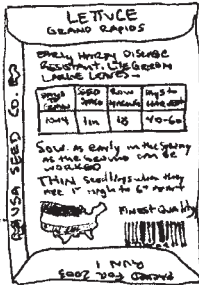 LETTUCE
GRAND RAPIDS
EARLY HARDY DISEASE
RESISTANT. LITE GREEN
LARGE LEAVES
DAYS TO GERM SEED SPACE ROW DAYS TO HARVEST
1in 18 40-60
SOW as early in the Spring
as the Ground can be
WORKED
THIN Seedlings when they
are 1" high to 6" apart
FINEST Quality
USA SEED CO.
PACKED FOR 2003